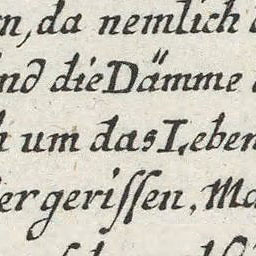 n, da nemlich
nd die Dämme
um das Leben
er gerissen, Ma